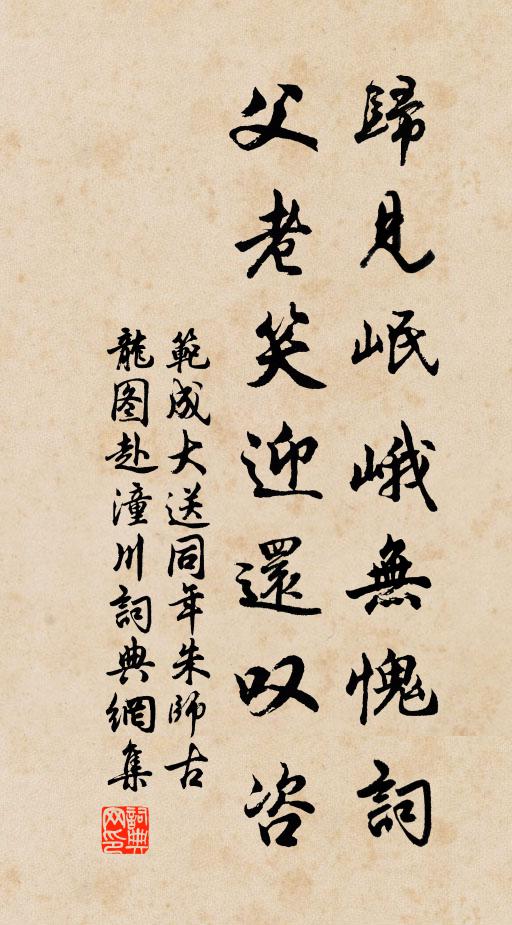 歸見岷峨無愧詞
父老笑迎還叹咨
範成大送同年朱師古
龍图赴潼川詞典網集
詞典网印